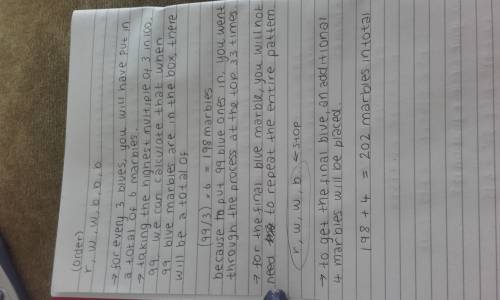 (order)
r, w, w, b, b, b
→ for every 3 blues, you will have put in
a total of 6 marbles.
→ taking the highest multiple of 3 in 100,
99, we can calculate that when
99 blue marbles are in the box, there
will be a total of
(99/3) × 6 = 198 marbles
because to put 99 blue ones in, you went
through the process at the top 33 times
→ for the final blue marble, you will not
need to repeat the entire pattern
r, w, w, b ← stop
→ to get the final blue, an additional
4 marbles will be placed.
198 + 4 = 202 marbles in total